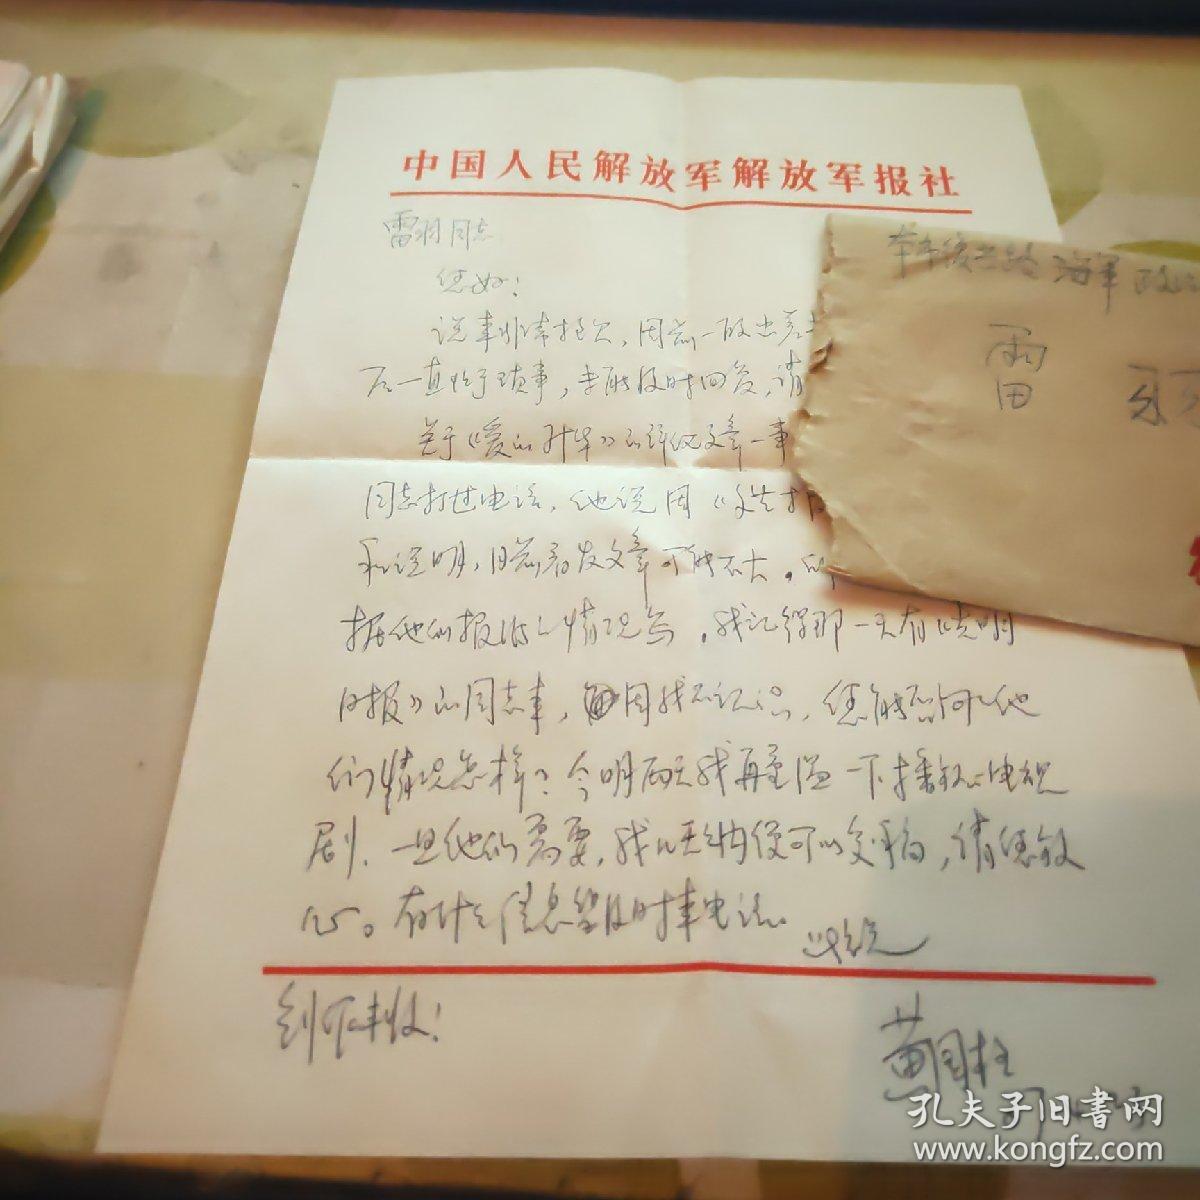 中国人民解放军解放军报社
雷羽同志
您好!
说来非常抱欠,因前一段出差
不一直忙于琐事,未能及时回复,请
关于《爱的升华》的评论文章一事
同志打过电话,他说因《文艺报
和说明,目前看发文章可能不大。
据他们报的情况,我记得那一天有《光明
日报》的同志来,因我不认识,您能否问问他
们情况怎样?今明两天我再重温一下播放的电视
剧,一旦他们需要,我很快便可以交稿,请您放
心。有什么信息望及时来电话。
创作丰收!
黄国柱
本市复兴路海军政治
雷
孔夫子旧书网
www.kongfz.com